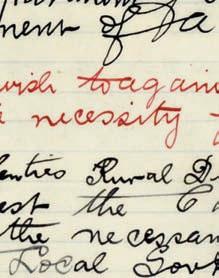 ment of
wish to again
necessity
Rural D
est the Co
the necessar
Local Gov